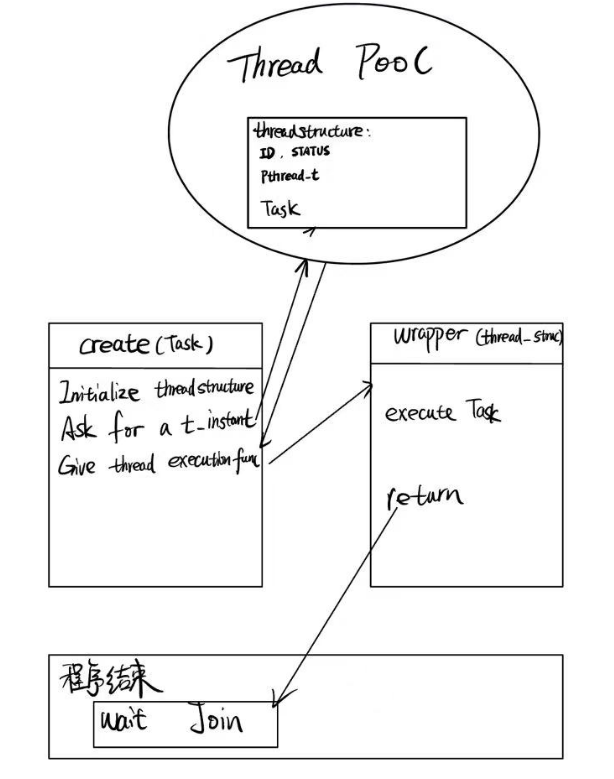 Thread Pool
threadstructure:
ID, STATUS
Pthread_t
Task
create(Task)
Initialize threadstructure
Ask for a t_instant
Give thread execution func
wrapper (thread_struc)
execute Task
return
程序结束
wait Join